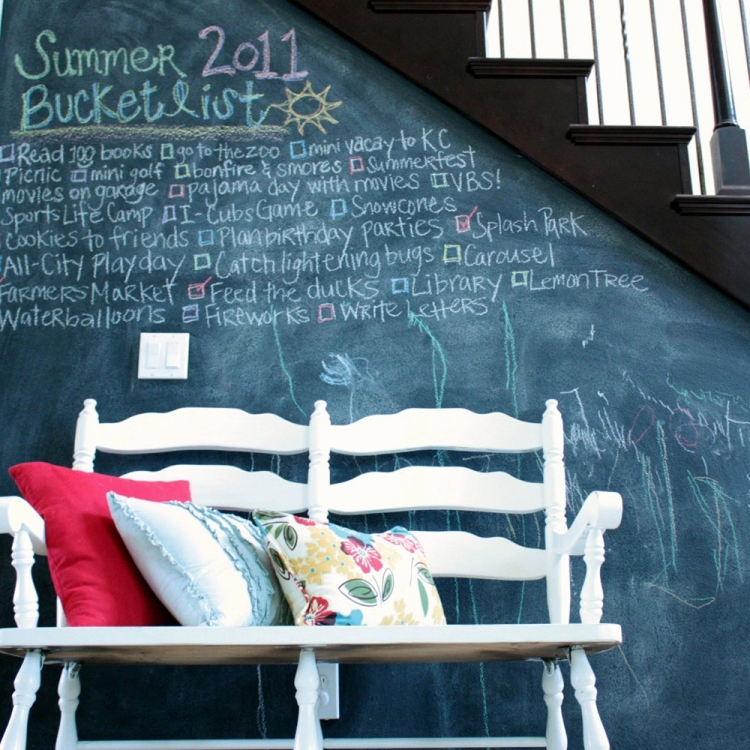 Summer 2011
Bucket list
Read 100 books go to the zoo mini vacay to KC
Picnic mini golf bonfire & smores Summerfest
movies on garage pajama day with movies VBS!
Sports Life Camp I-Cubs Game Snowcones
Cookies to friends Plan birthday parties Splash Park
All-City Playday Catch lightening bugs Carousel
Farmers Market Feed the ducks Library Lemon Tree
Waterballoons Fireworks Write Letters